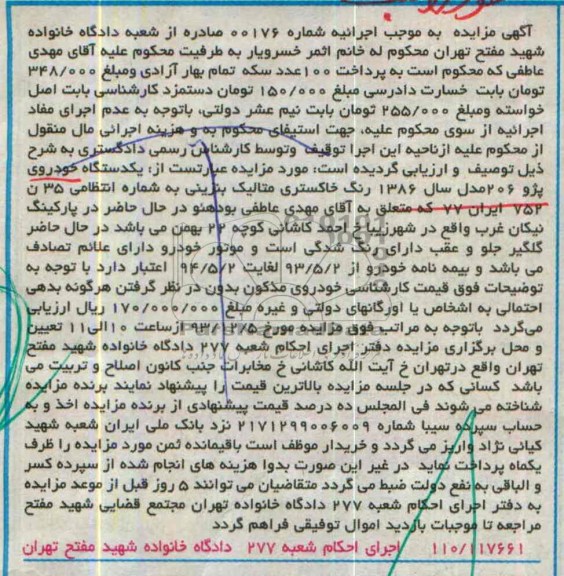 آگهی مزایده به موجب اجرائیه شماره ۰۰۱۷۶ صادره از شعبه دادگاه خانواده
شهید مفتح تهران محکوم له خانم اثمر خسرویار به طرفیت محکوم علیه آقای مهدی
عاطفی که محکوم است به پرداخت ۱۰۰عدد سکه تمام بهار آزادی ومبلغ ۳۴۸/۰۰۰
تومان بابت خسارت دادرسی مبلغ ۱۵۰/۰۰۰ تومان دستمزد کارشناسی بابت اصل
خواسته ومبلغ ۲۵۵/۰۰۰ تومان بابت نیم عشر دولتی، باتوجه به عدم اجرای مفاد
اجرائیه از سوی محکوم علیه، جهت استیفای محکوم به و هزینه اجرائی مال منقول
از محکوم علیه ازناحیه این اجرا توقیف وتوسط کارشناس رسمی دادگستری به شرح
ذیل توصیف و ارزیابی گردیده است: مورد مزایده عبارتست از: یکدستگاه خودروی
پژو ۲۰۶مدل سال ۱۳۸۶ رنگ خاکستری متالیک بنزینی به شماره انتظامی ۳۵ ن
۷۵۲ ایران ۷۷ که متعلق به آقای مهدی عاطفی بودهنو در حال حاضر در پارکینگ
نیکان غرب واقع در شهرزیبا خ احمد کاشانی کوچه ۲۲ بهمن می باشد در حال حاضر
گلگیر جلو و عقب دارای رنگ شدگی است و موتور خودرو دارای علائم تصادف
می باشد و بیمه نامه خودرو از ۹۳/۵/۲ لغایت ۹۴/۵/۲ اعتبار دارد با توجه به
توضیحات فوق قیمت کارشناسی خودروی مذکون بدون در نظر گرفتن هرگونه بدهی
احتمالی به اشخاص یا اورگانهای دولتی و غیره مبلغ ۱۷۰/۰۰۰/۰۰۰ ریال ارزیابی
می‌گردد باتوجه به مراتب فوق مزایده مورخ ۹۳/۱۲/۵ ازساعت ۱۰الی۱۱ تعیین
و محل برگزاری مزایده دفتر اجرای احکام شعبه ۲۷۷ دادگاه خانواده شهید مفتح
تهران واقع درتهران خ آیت الله کاشانی خ مخابرات جنب کانون اصلاح و تربیت می
باشد کسانی که در جلسه مزایده بالاترین قیمت را پیشنهاد نمایند برنده مزایده
شناخته می شوند فی المجلس ده درصد قیمت پیشنهادی از برنده مزایده اخذ و به
حساب سپرده سیبا شماره ۲۱۷۱۲۹۹۰۰۶۰۰۹ نزد بانک ملی ایران شعبه شهید
کیانی نژاد واریز می گردد و خریدار موظف است باقیمانده ثمن مورد مزایده را ظرف
یکماه پرداخت نماید در غیر این صورت بدوا هزینه های انجام شده از سپرده کسر
و الباقی به نفع دولت ضبط می گردد متقاضیان می توانند ۵ روز قبل از موعد مزایده
به دفتر اجرای احکام شعبه ۲۷۷ دادگاه خانواده تهران مجتمع قضایی شهید مفتح
مراجعه تا موجبات بازدید اموال توقیفی فراهم گردد
۱۱۰/۱۱۷۶۶۱ اجرای احکام شعبه ۲۷۷ دادگاه خانواده شهید مفتح تهران